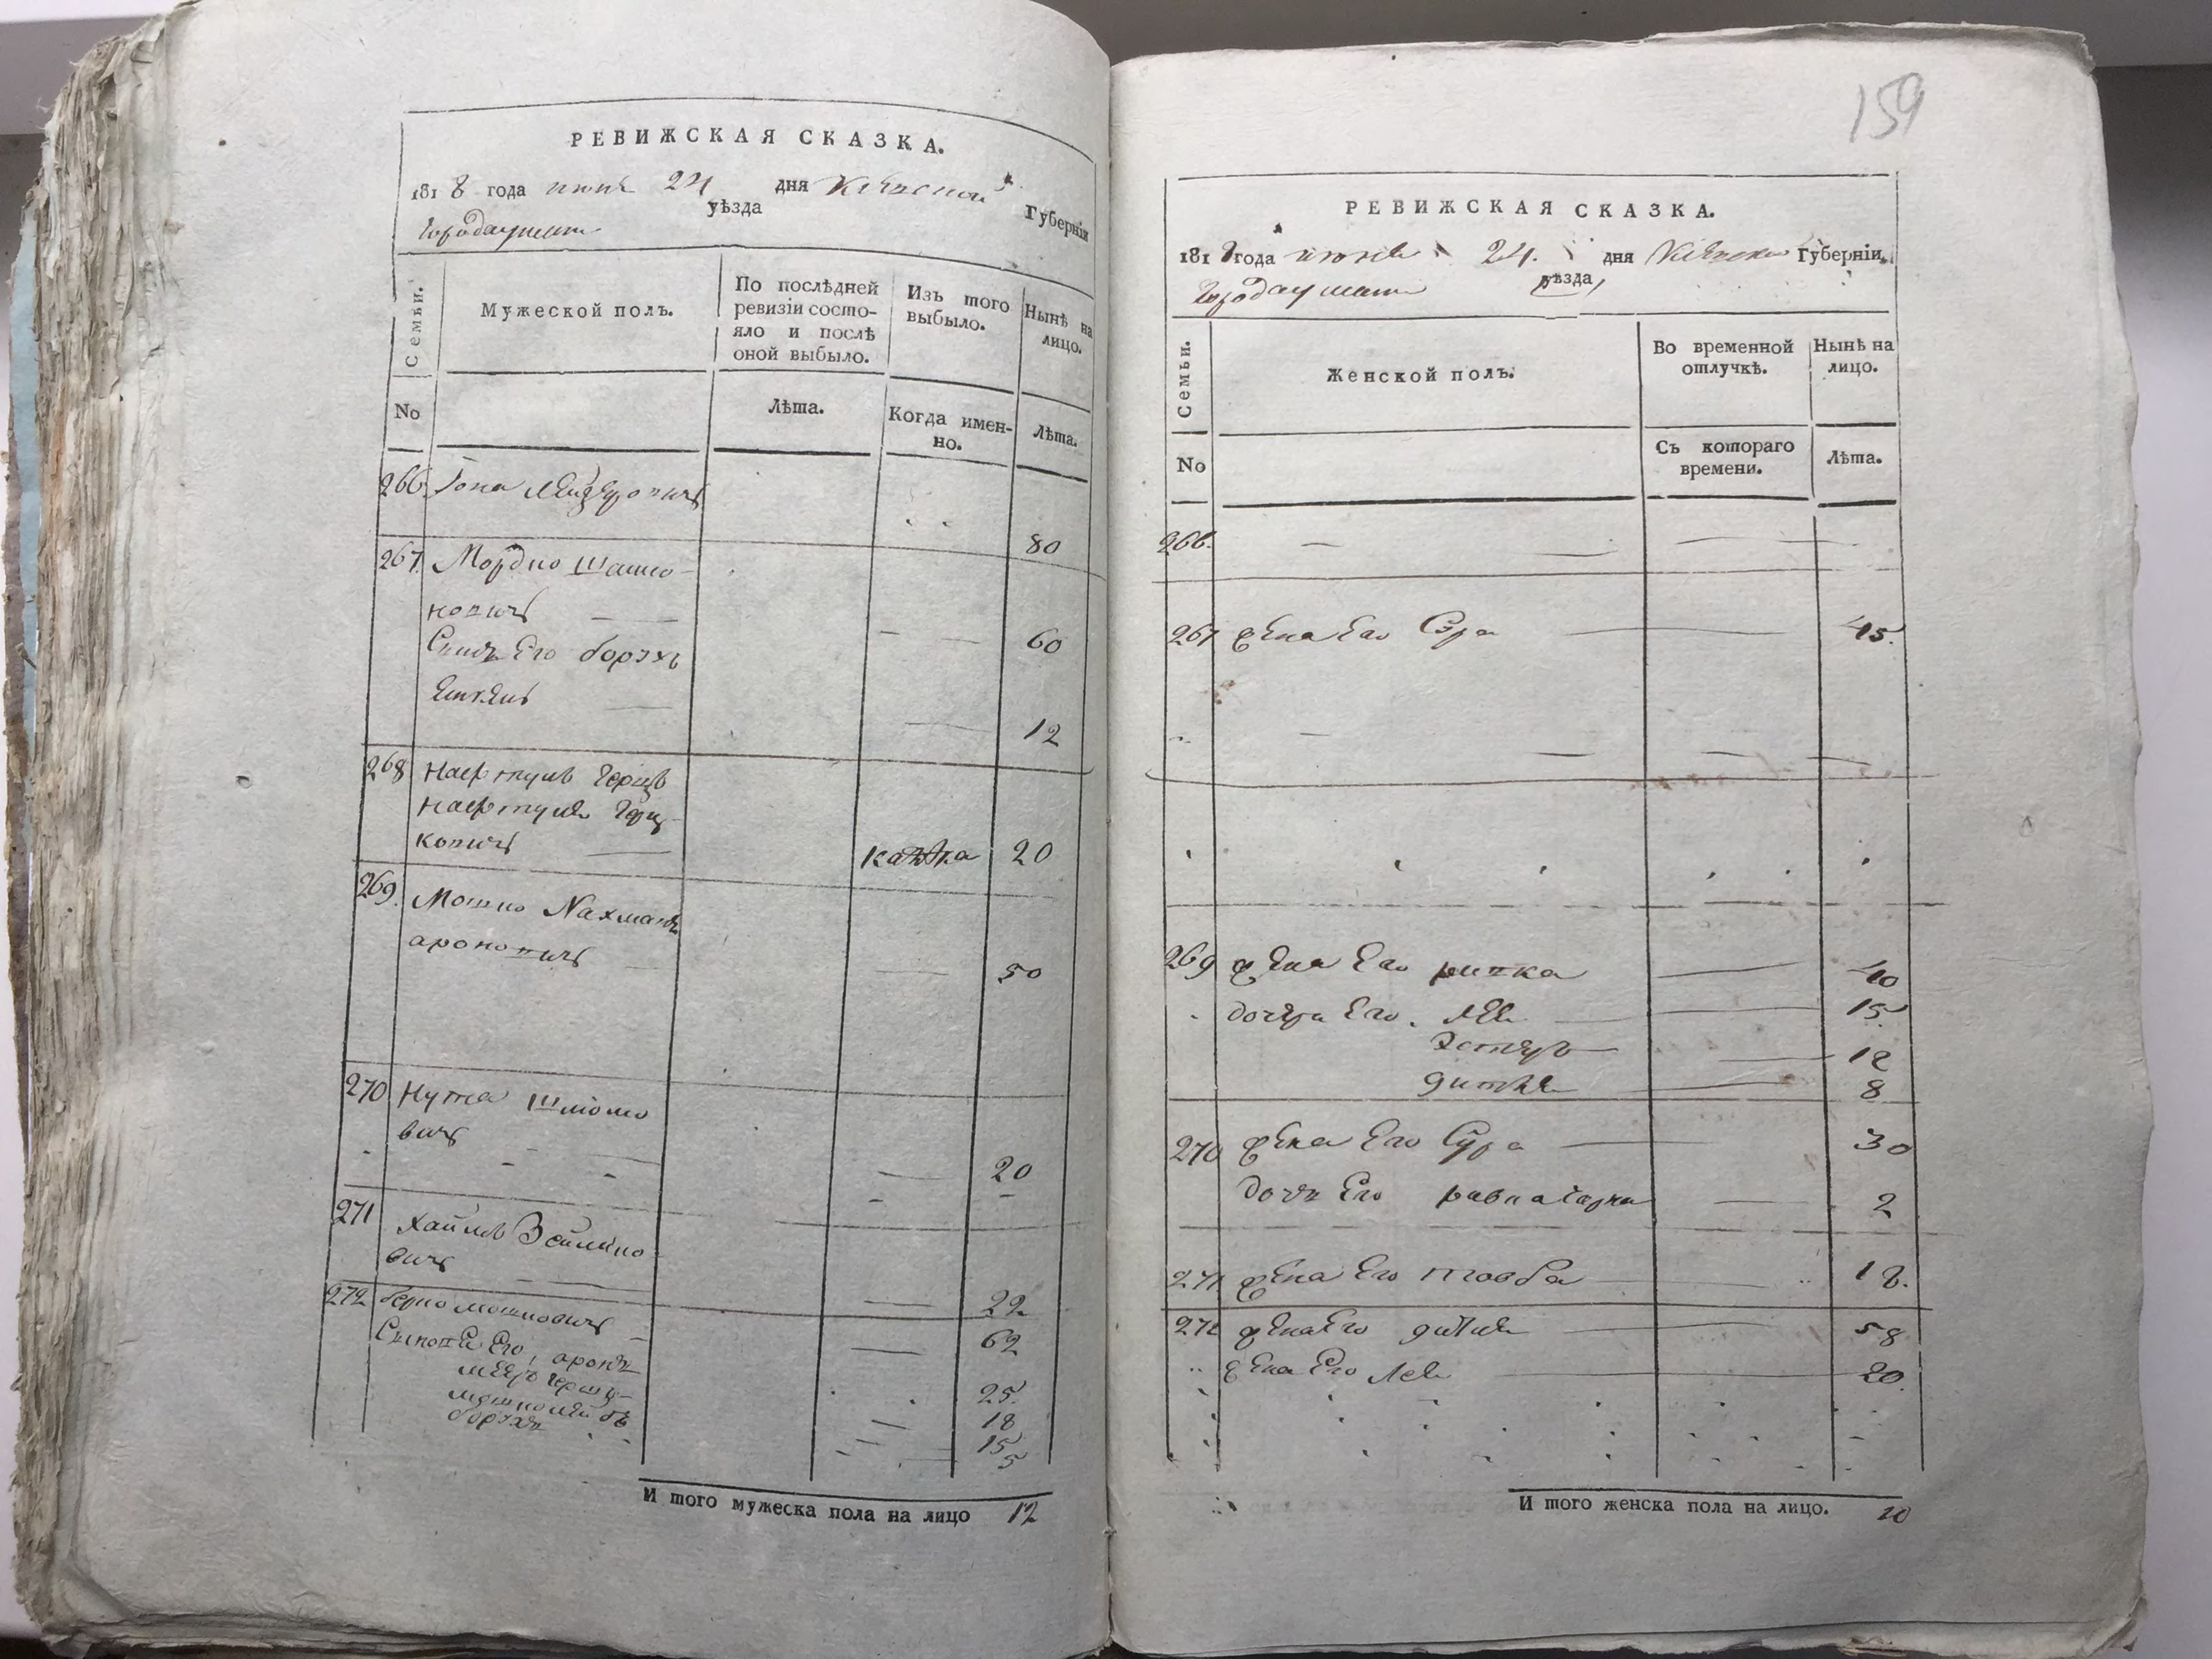 РЕВИЖСКАЯ СКАЗКА.
1818 года июня 24 дня Киевской Губерніи
города уманя уѣзда
Семьи.
Мужеской полъ.
По послѣдней ревизіи состояло и послѣ оной выбыло.
Изъ того выбыло.
Нынѣ на лицо.
No
Лѣта.
Когда именно.
Лѣта.
266. Іона Лейзеровичъ
80
267. Мордко Шашко-
вовичъ — —
60
Сынъ Его борэхъ
12
268 Нафтуль Герцъ
Нафтуля Герц-
ковичъ — 20
269. Мошко Нахманъ
ароновичъ —
50
270 Нута Шлiомо
вичъ
20
271 Хаимъ Зейлико
вичъ
22
272 берко мошковичъ —
62
Сыновья Его, аронъ
25.
18
мошко лейбъ
15
борэхъ
5
И того мужеска пола на лицо 12
159
РЕВИЖСКАЯ СКАЗКА.
1818 года июня 24. дня Киевской Губерніи.
города уманя уѣзда
Семьи.
Женской полъ.
Во временной отлучкѣ.
Нынѣ на лицо.
No
Съ котораго времени.
Лѣта.
266. — — — —
267 жена Его Сэра — 45.
269 жена Его ривка — 40
дочери Его. Лея — 15
Эстеръ — 12
дитля — 8
270 жена Его Сура — 30
дочь Его — 2
271 жена Его товба — 18.
272 жена Его — 58
жена Его Лея — 20.
И того женска пола на лицо. 10